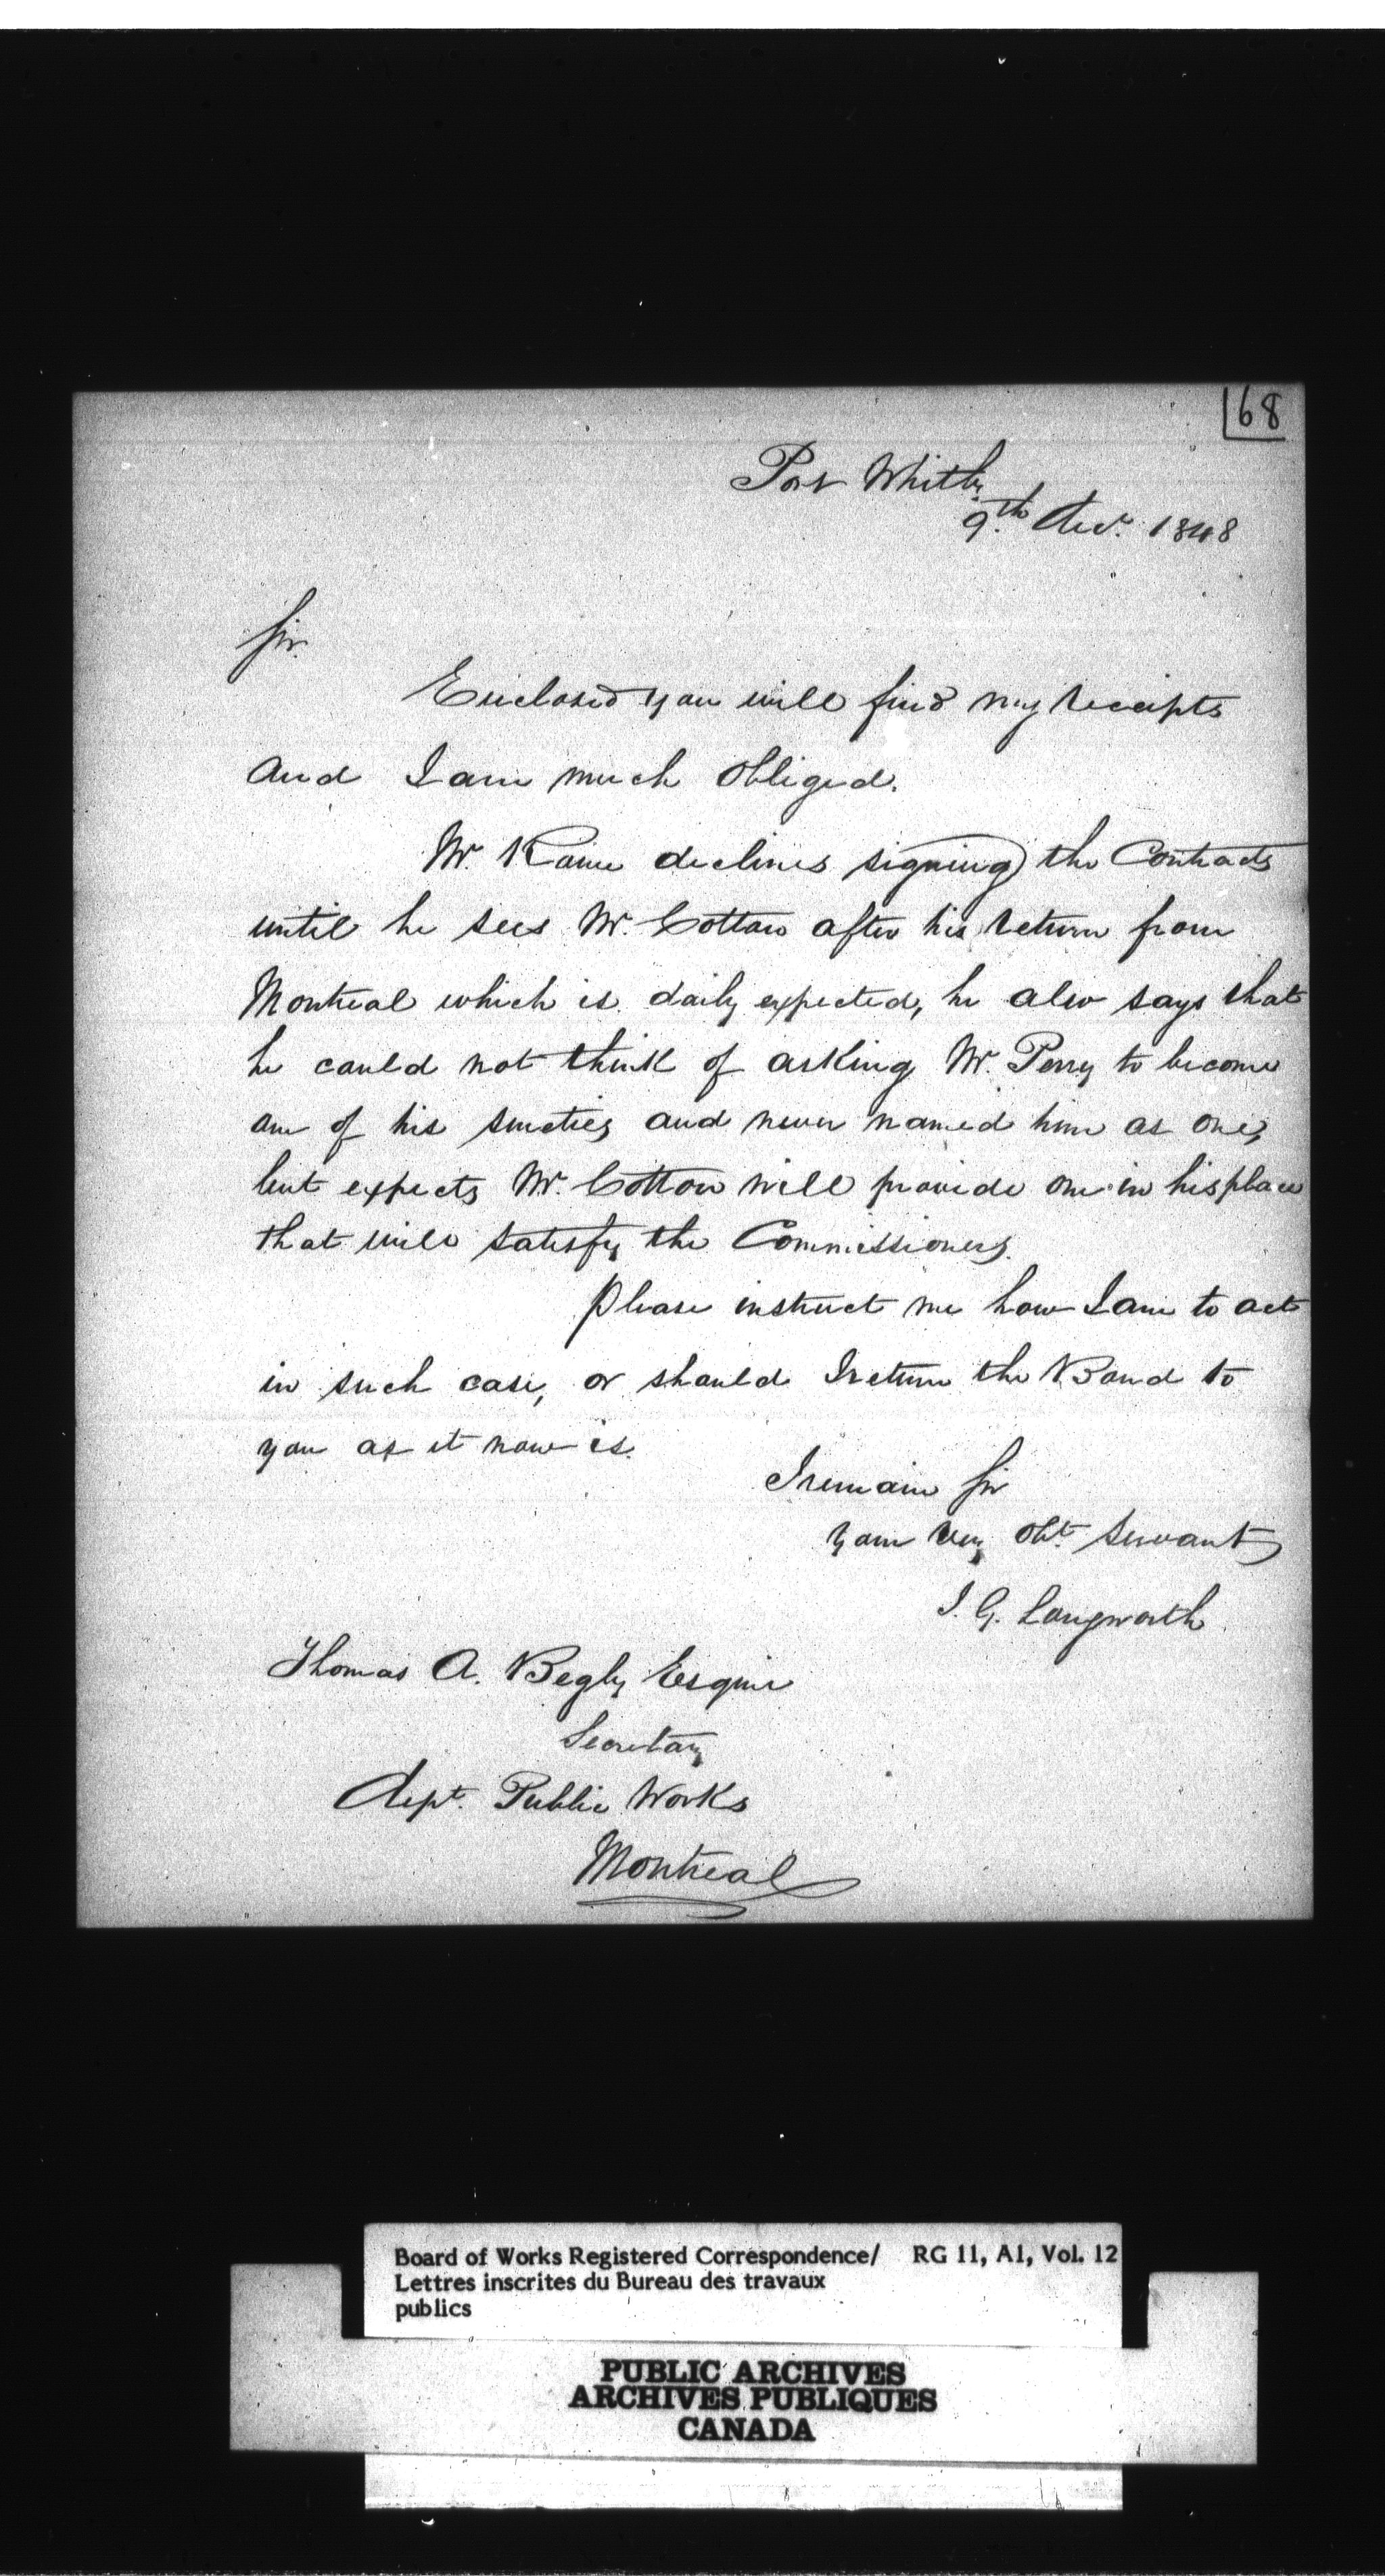 68
Port Whitby
9th Decr. 1848
Sir.
Enclosed you will find my receipts
and I am much obliged.
Mr. declines signing the Contracts
until he sees Mr. Cotton after his return from
Montreal which is daily expected, he also says that
he could not think of asking Mr. Perry to become
one of his sureties and never named him as one,
but expects Mr. Cotton will provide one in his place
that will satisfy the Commissioners.
Please instruct me how I am to act
in such case, or should I return the Bond to
you as it now is.
I remain Sir
your very Obt. Servant
J. G. Longworth
Thomas A. Begly Esquire
Secretary
Dept. Public Works
Montreal
Board of Works Registered Correspondence/ RG 11, A1, Vol. 12
Lettres inscrites du Bureau des travaux
publics
PUBLIC ARCHIVES
ARCHIVES PUBLIQUES
CANADA